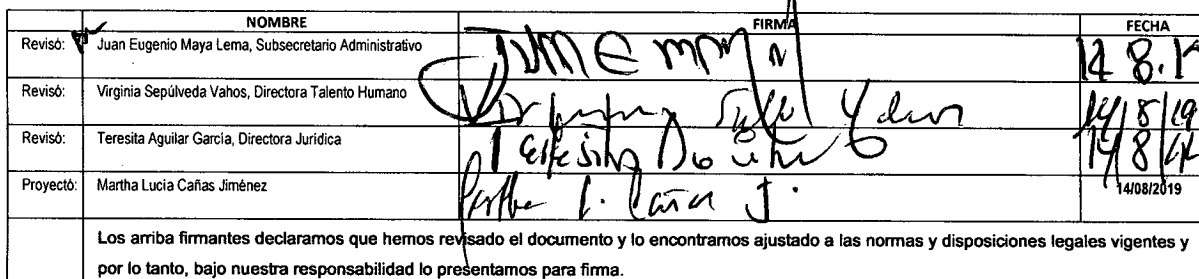 NOMBRE FIRMA FECHA
Revisó: Juan Eugenio Maya Lema, Subsecretario Administrativo
Revisó: Virginia Sepúlveda Vahos, Directora Talento Humano 14/8/19
Revisó: Teresita Aguilar García, Directora Jurídica
Proyectó: Martha Lucía Cañas Jiménez Martha L. Cañas J. 14/08/2019
Los arriba firmantes declaramos que hemos revisado el documento y lo encontramos ajustado a las normas y disposiciones legales vigentes y
por lo tanto, bajo nuestra responsabilidad lo presentamos para firma.